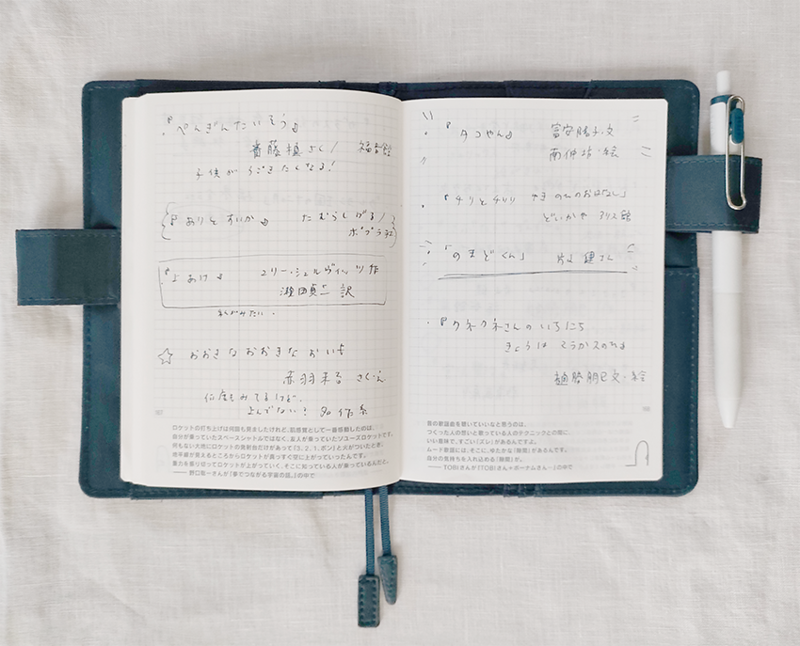 『ぺんぎんたいそう』
齋藤槙 さく / 福音館
子供が うごきたくなる!
『ありとすいか』 たむらしげる /
ポプラ社
『よあけ』 ユリー・シュルヴィッツ 作
瀬田貞二 訳
まんがみたい。
☆ おおきなおおきな おいも
赤羽末吉 さく・え
何度もみてるけど、
よんでない? 名作系
ロケットの打ち上げは何回も見ましたけれど、肌感覚として一番感動したのは、
自分が乗っていたスペースシャトルではなく、友人が乗っていたソユーズロケットです。
何もない大地にロケットの発射台だけがあって「3、2、1、ボン」と火がついたとき、
地平線が見えるところからロケットが真っすぐ空に上がっていったんです。
重力を振り切ってロケットが上がっていく、そこに知っている人が乗っているんだと。
―― 野口聡一さんが『夢でつながる宇宙の話。』の中で
・『タコやん』 富安陽子・文
南伸坊・絵
・『チリとチリリ
どいかや アリス館
・「のまどくん」 片山 健 さん
・『クネクネさんの いちにち
きょうは マラカスのひ』
樋勝朋巳 文・絵
昔の歌謡曲を聴いていいなと思うのは、
つくった人の想いと歌っている人のテクニックとの間に、
いい意味で、すごい「ズレ」があるんですよ。
ムード歌謡には、そこに、ゆたかな「隙間」があるんです。
自分の気持ちも入れ込める「隙間」が。
―― TOBIさんが『TOBIさん+ボーナムさん…』の中で